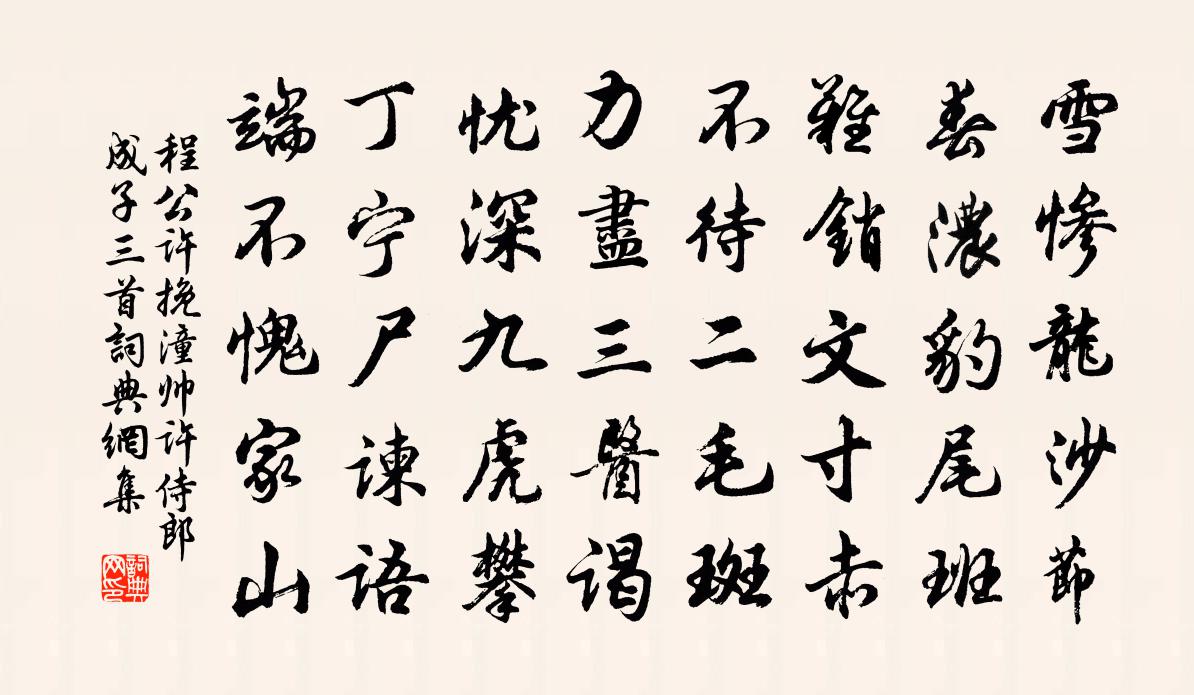 雪慘龍沙節
春濃豹尾班
難銷文寸赤
不待二毛斑
力盡三醫謁
忧深九虎攀
丁宁尸谏语
端不愧家山
程公许挽潼帅许侍郎
成子三首詞典網集
詞典
网印